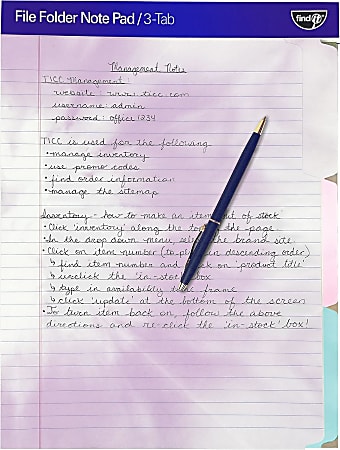 File Folder Note Pad / 3-Tab
find it
Management Notes
TICC Management
website: www.ticc.com
username: admin
password: office1234
TICC is used for the following
• manage inventory
• use promo codes
• find order information
• manage the sitemap
Inventory - how to make an item out of stock
• Click 'inventory' along the top of the page
• In the drop down menu, select the brand site
• Click on item number (to place in descending order)
↳ find item number and click on 'product title'
↳ unclick the 'in-stock' box
↳ type in availability time frame
↳ click 'update' at the bottom of the screen
• To turn item back on, follow the above
directions and re-click the 'in-stock' box!